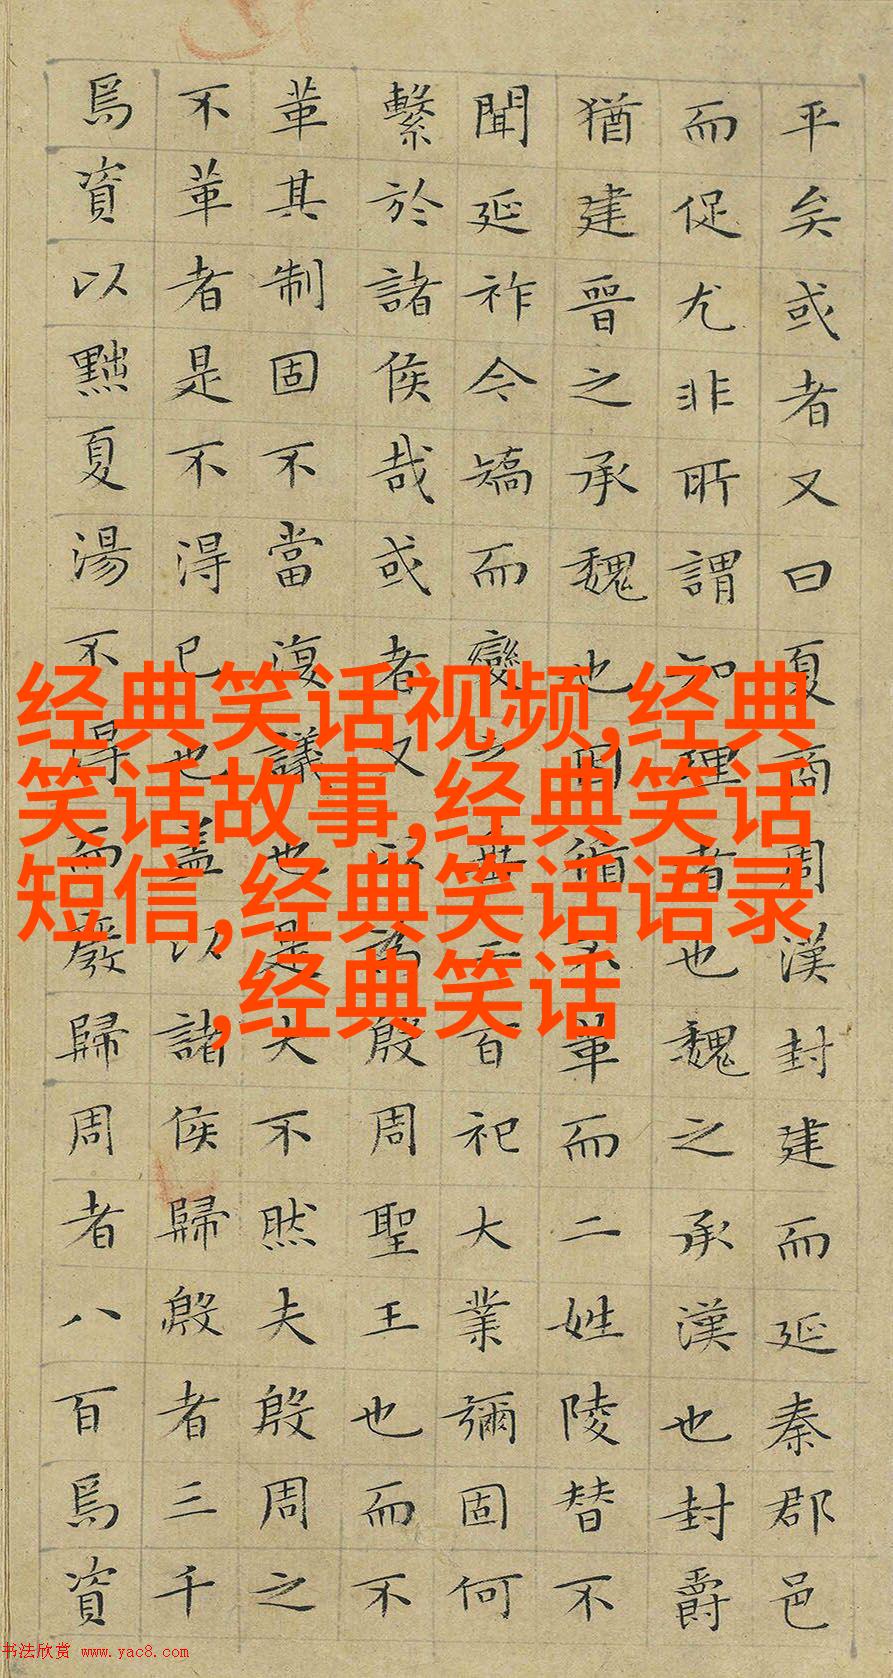 平矣或者又曰夏商周漢封建而延秦郡邑
而促尤非所謂知理者也魏之承漢也封爵
猶建晉之承魏也因循不革而二姓陵替不
聞延祚今矯而變之垂二百祀大業彌固何
繫於諸侯哉或者又以為殷周聖王也而不
革其制固不當復議也是大不然夫殷周之
不革者是不得已也蓋以諸侯歸殷者三千
焉資以黜夏湯不得而廢歸周者八百焉資
经典笑话视频,经典
笑话故事,经典笑话
短信,经典笑话语录
,经典笑话
书法欣赏 www.yac8.com